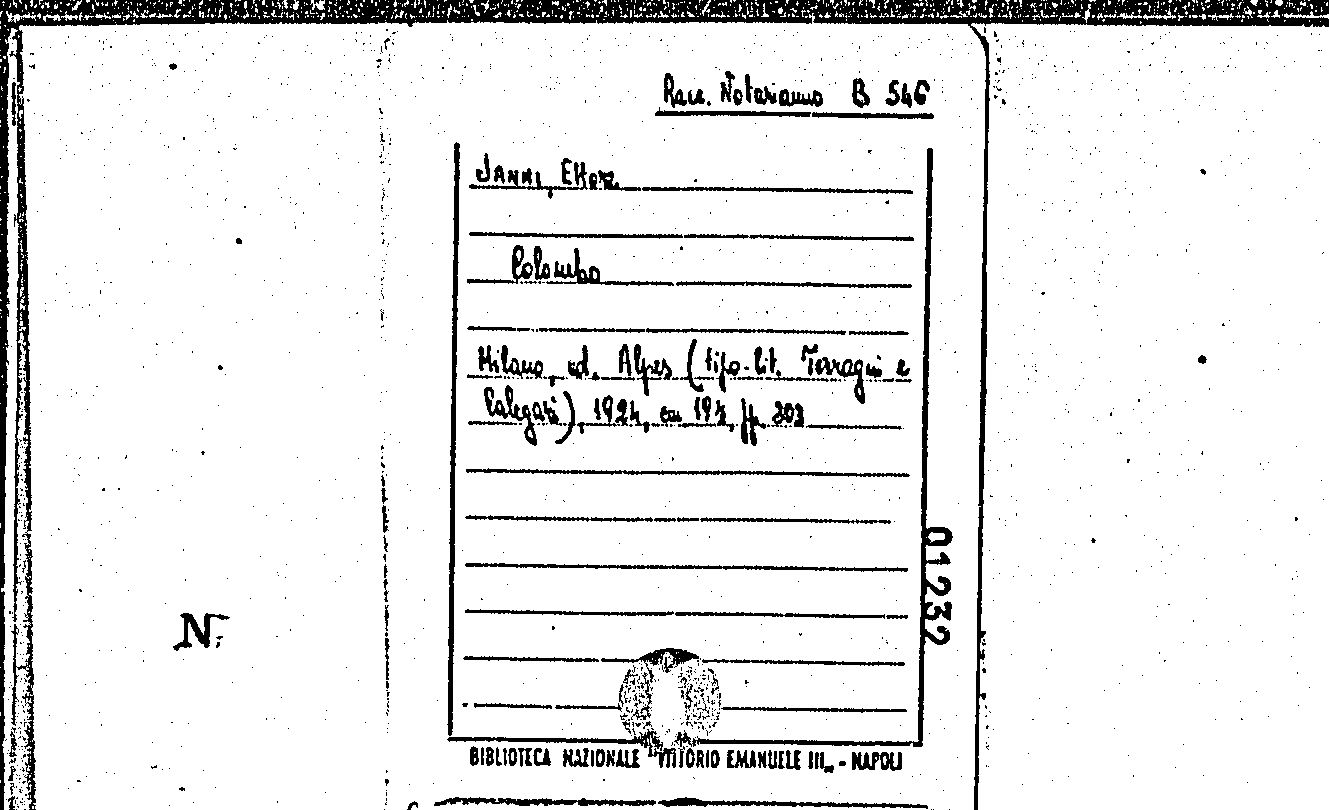 Racc. Notarianno B 546
JANNI, Ettore
Colombo
Milano, ed. Alpes (tipo-lit. Terragni e
Calegari), 1924, cm 19½, pp. 303
01232
N.
BIBLIOTECA NAZIONALE "VITTORIO EMANUELE III„ - NAPOLI